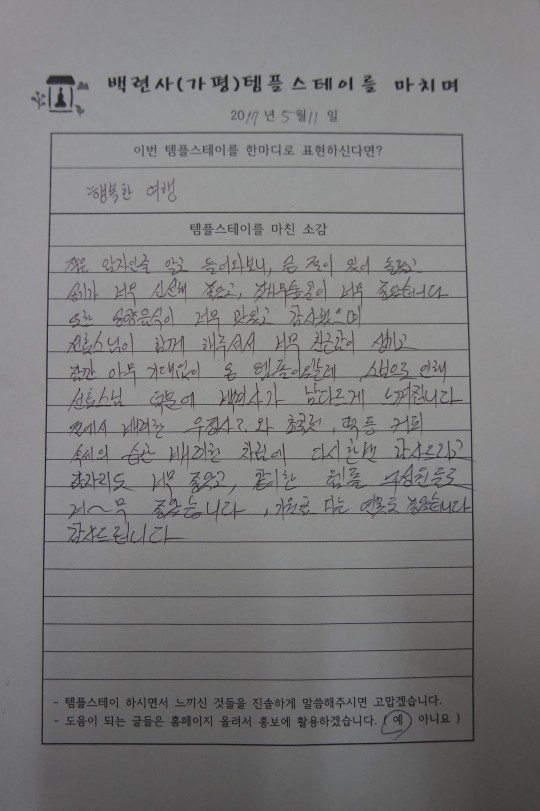 백련사(가평)템플스테이를 마치며
2017년 5월 11일
이번 템플스테이를 한마디로 표현하신다면?
행복한 여행
템플스테이를 마친 소감
작은 암자인줄 알고 들어와보니, 큰 절이 있어 놀랐고
공기가 너무 신선해 좋았고, 너무 좋았습니다
또한 공양음식이 너무 맛있고 감사했으며
선효스님이 함께 해주셔서 너무 친근감이 생기고
잠깐 아무 기대없이 온 템플이었는데 스님으로 인해
선효스님 덕분에 백련사가 남다르게 느껴집니다
배려한 와 초콜릿, 떡 등 커피
속세의 배려한 차림에 다시 한번 감사드리고
잠자리도 너무 좋았고, 같이한 템플 구성원들도
너~무 좋았습니다, 좋았습니다
감사드립니다
- 템플스테이 하시면서 느끼신 것들을 진솔하게 말씀해주시면 고맙겠습니다.
- 도움이 되는 글들은 홈페이지 올려서 홍보에 활용하겠습니다. ( 예 아니요 )